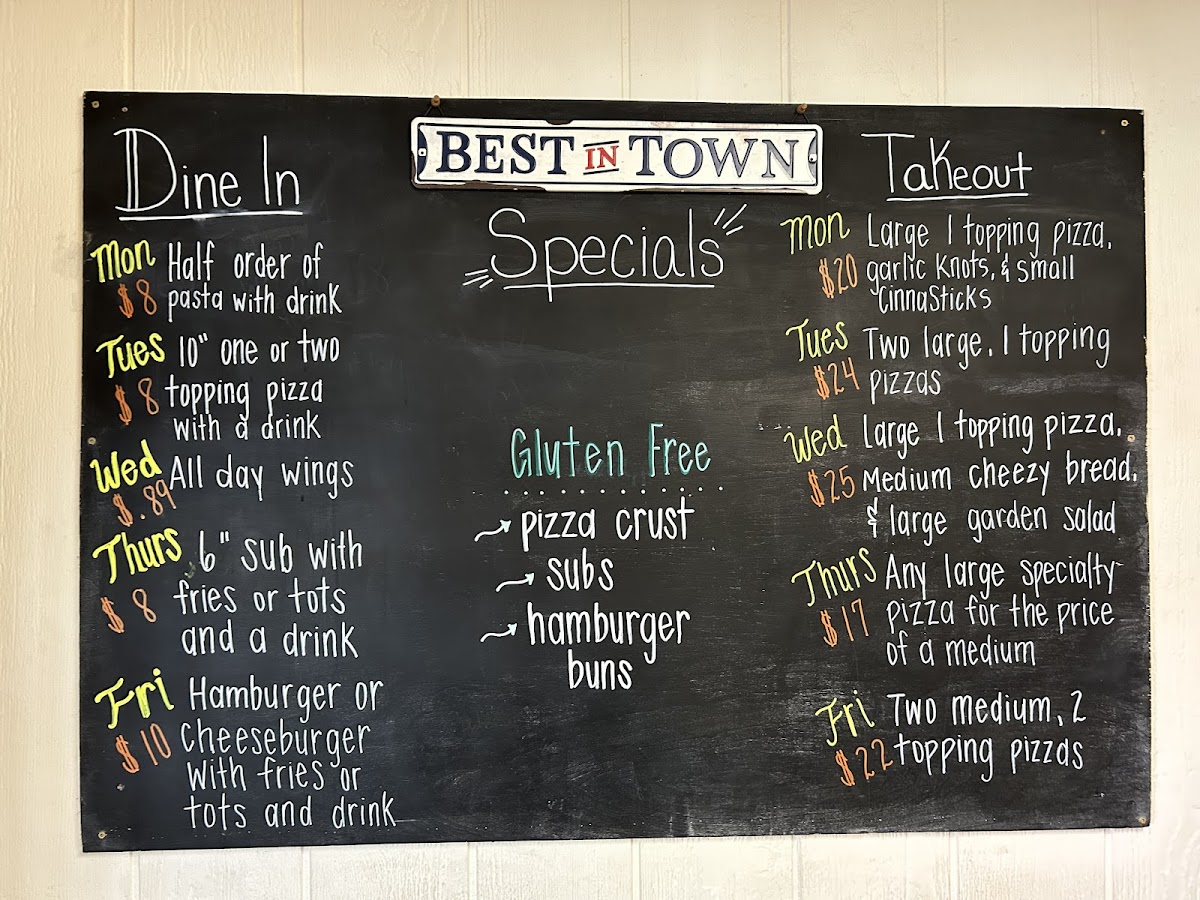 BEST IN TOWN
Specials
Dine In
Mon Half order of
$8 pasta with drink
Tues 10" one or two
$8 topping pizza
with a drink
Wed All day wings
$.89
Thurs 6" sub with
$8 fries or tots
and a drink
Fri Hamburger or
$10 cheeseburger
with fries or
tots and drink
Gluten Free
pizza crust
subs
hamburger
buns
Takeout
Mon Large 1 topping pizza,
$20 garlic knots, & small
cinnasticks
Tues Two large, 1 topping
$24 pizzas
Wed Large 1 topping pizza,
$25 medium cheezy bread,
& large garden salad
Thurs Any large specialty
$17 pizza for the price
of a medium
Fri Two medium, 2
$22 topping pizzas